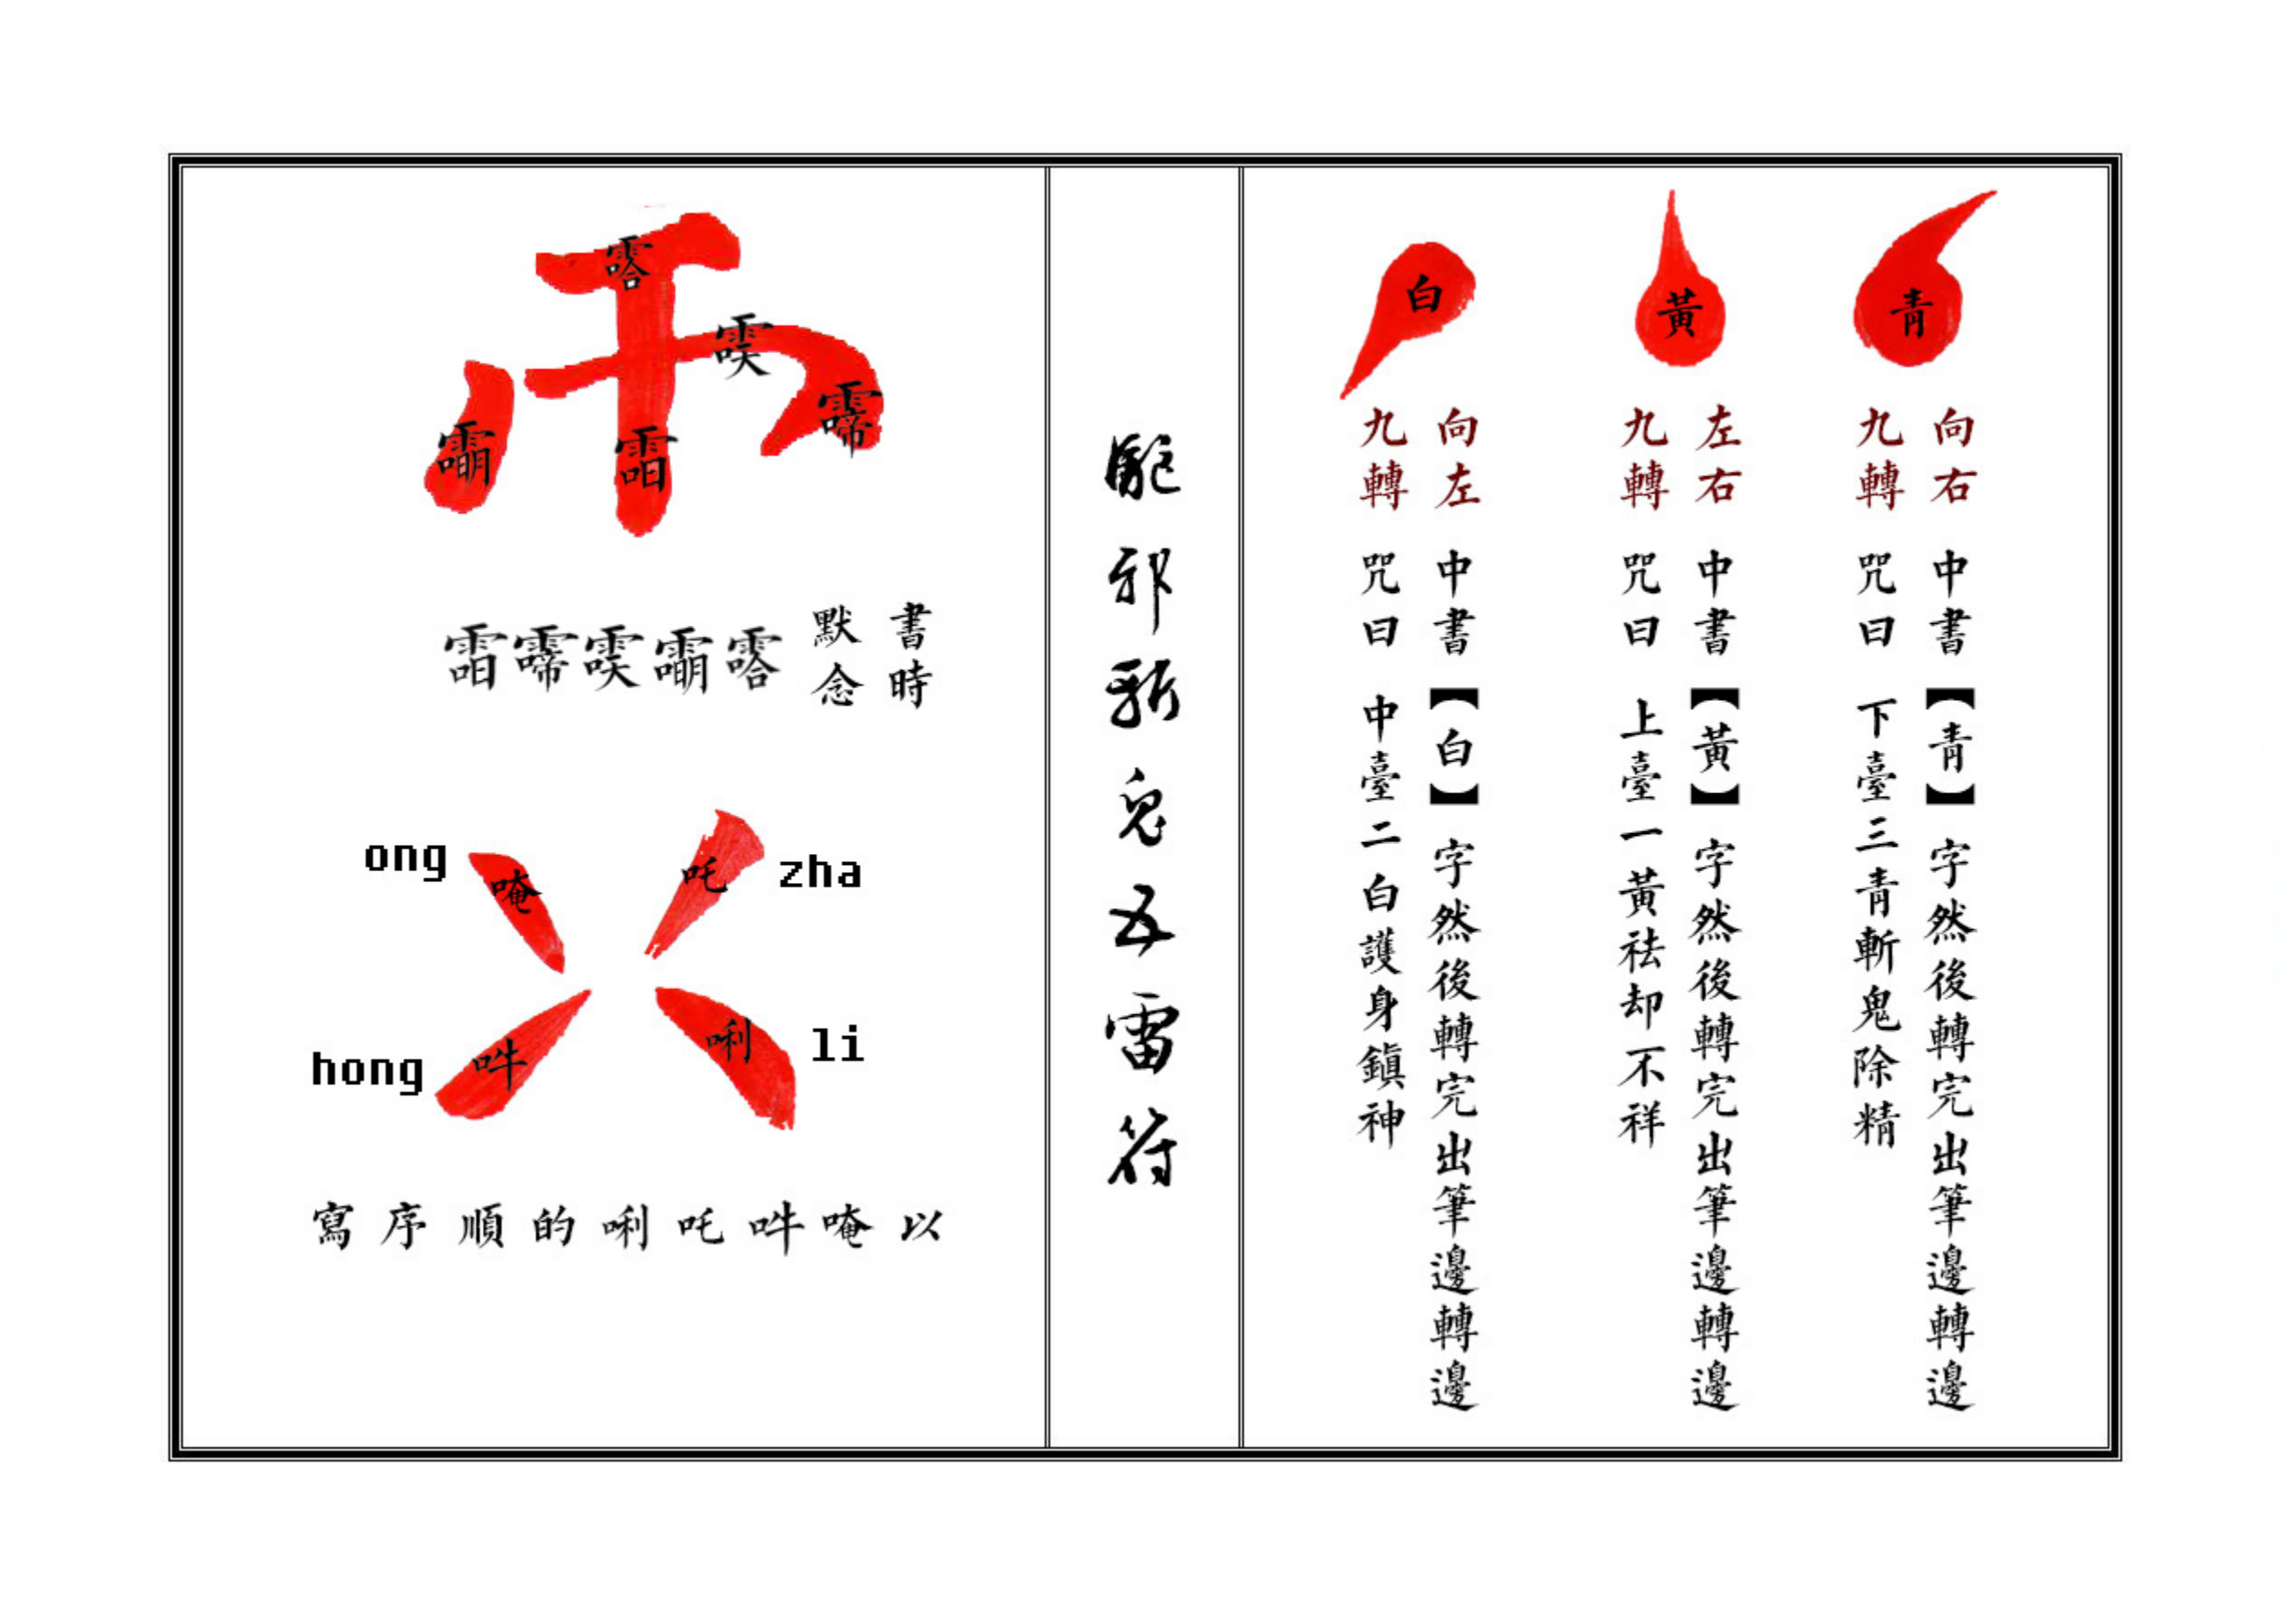 青
向右
九轉
中書【青】字然後轉完出筆邊轉邊
咒曰 下臺三青斬鬼除精
黃
左右
九轉
中書【黃】字然後轉完出筆邊轉邊
咒曰 上臺一黃祛却不祥
白
向左
九轉
中書【白】字然後轉完出筆邊轉邊
咒曰 中臺二白護身鎮神
驅邪斬鬼五雷符
書時
默念
ong 唵
吒 zha
hong 吽
唎 li
以唵吽吒唎的順序寫